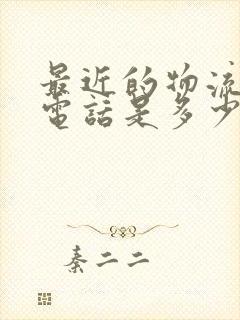 最近的物流
電話是多少
秦二二